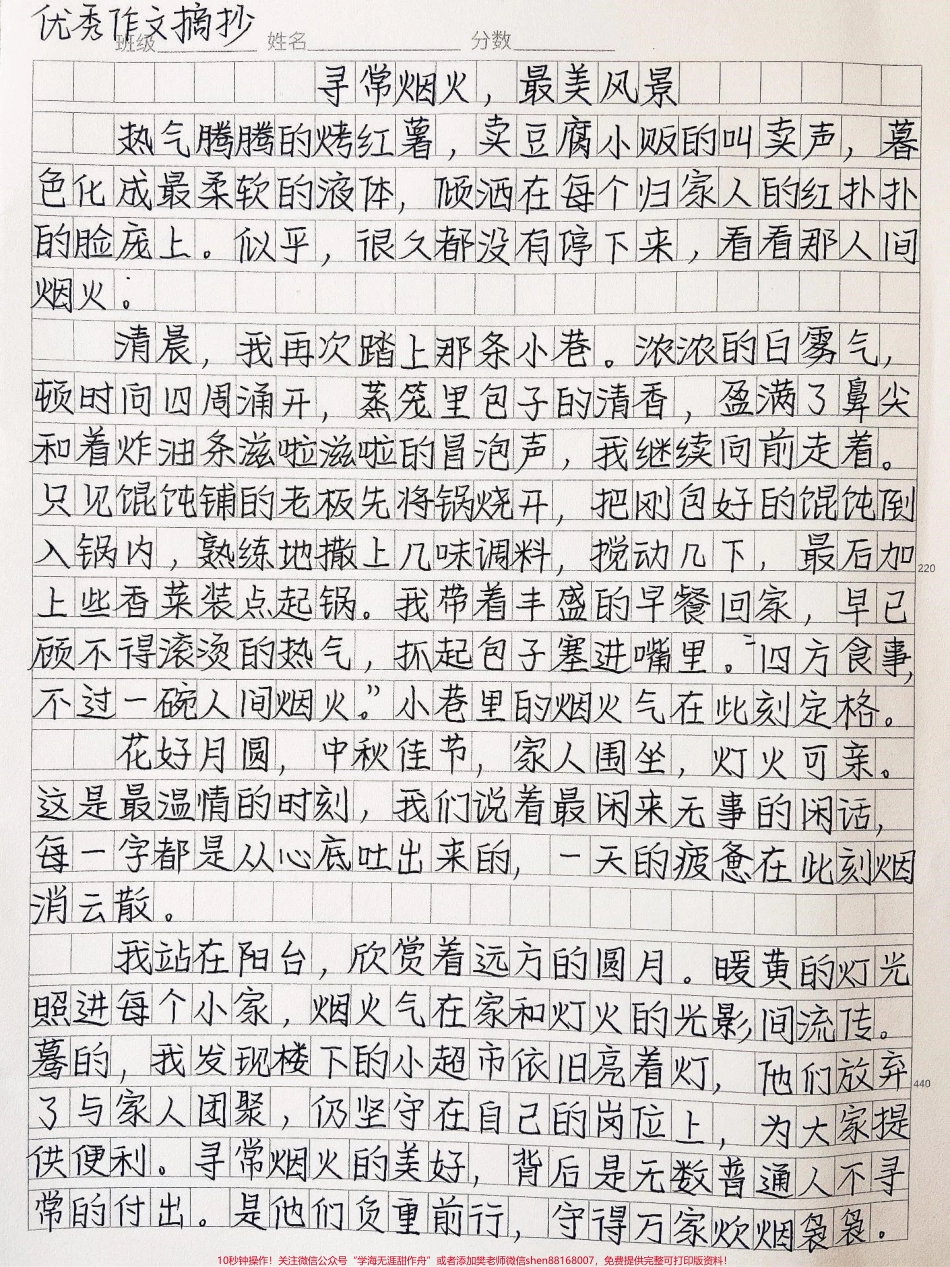 优秀作文摘抄
班级 姓名 分数
寻常烟火，最美风景
热气腾腾的烤红薯，卖豆腐小贩的叫卖声，暮
色化成最柔软的液体，倾洒在每个归家人的红扑扑
的脸庞上。似乎，很久都没有停下来，看看那人间
烟火：
清晨，我再次踏上那条小巷。浓浓的白雾气，
顿时向四周涌开，蒸笼里包子的清香，盈满了鼻尖
和着炸油条滋啦滋啦的冒泡声，我继续向前走着。
只见馄饨铺的老板先将锅烧开，把刚包好的馄饨倒
入锅内，熟练地撒上几味调料，搅动几下，最后加
220
上些香菜装点起锅。我带着丰盛的早餐回家，早已
顾不得滚烫的热气，抓起包子塞进嘴里。“四方食事，
不过一碗人间烟火。”小巷里的烟火气在此刻定格。
花好月圆，中秋佳节，家人围坐，灯火可亲。
这是最温情的时刻，我们说着最闲来无事的闲话，
每一字都是从心底吐出来的，一天的疲惫在此刻烟
消云散。
我站在阳台，欣赏着远方的圆月。暖黄的灯光
照进每个小家，烟火气在家和灯火的光影间流传。
蓦的，我发现楼下的小超市依旧亮着灯，他们放弃
440
了与家人团聚，仍坚守在自己的岗位上，为大家提
供便利。寻常烟火的美好，背后是无数普通人不寻
常的付出。是他们负重前行，守得万家炊烟袅袅。
10秒钟操作！关注微信公众号“学海无涯甜作舟”或者添加樊老师微信shen88168007，免费提供完整可打印版资料！